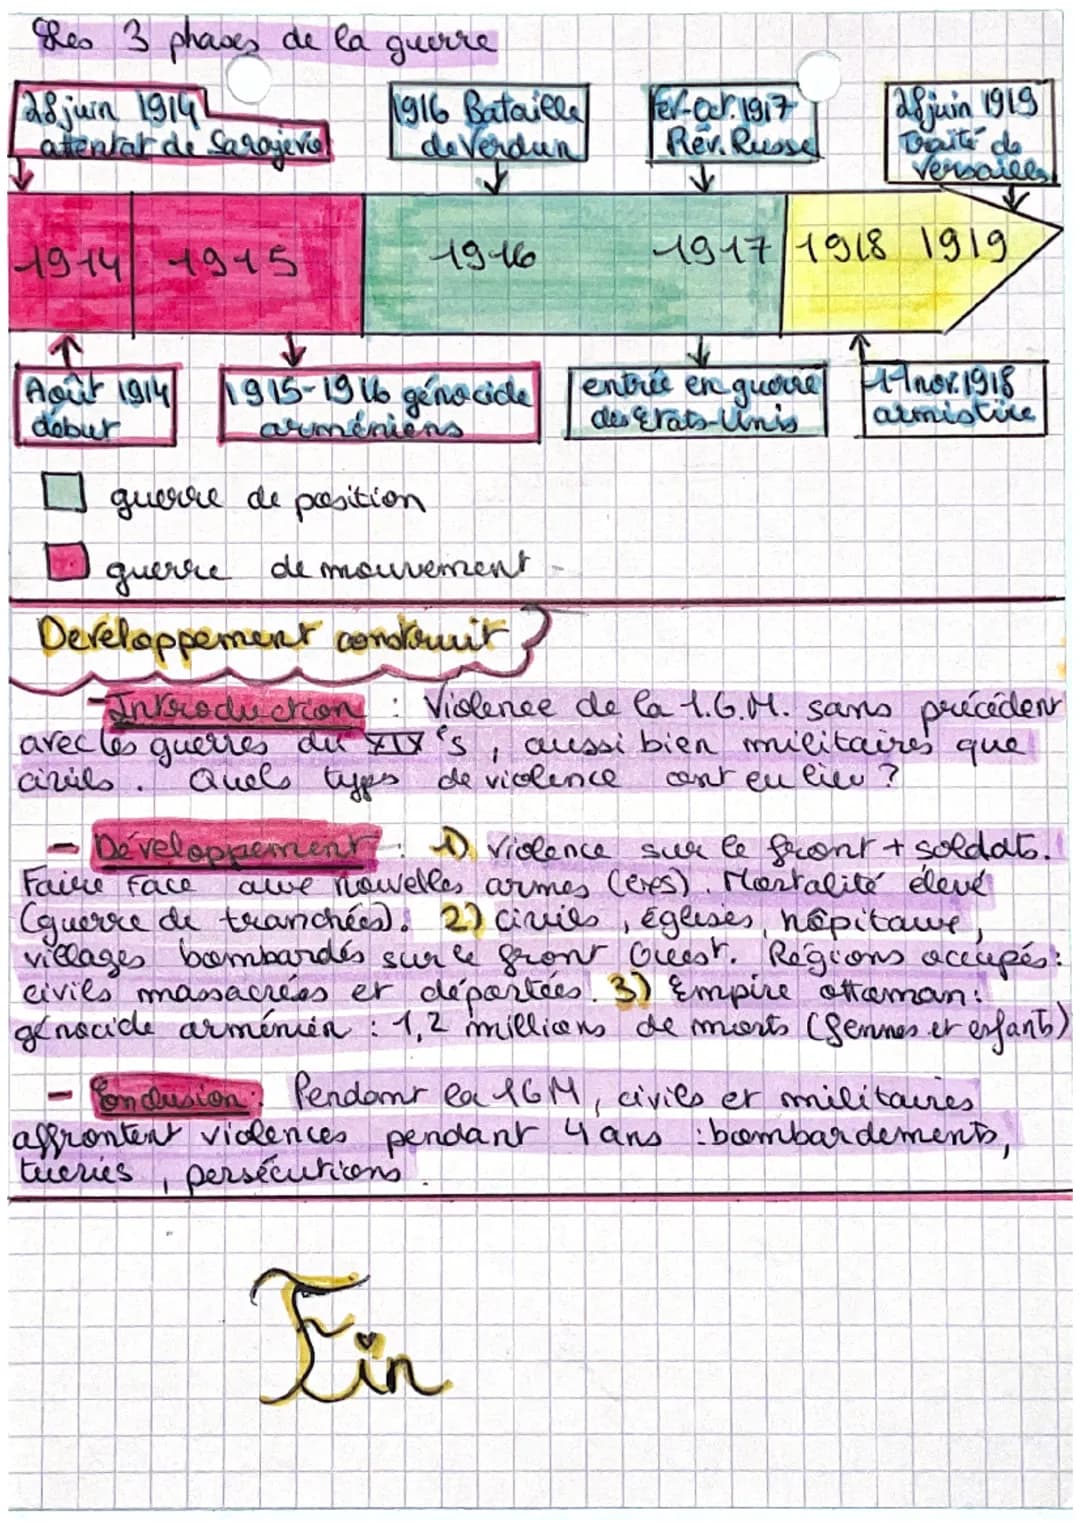 Les 3 phases de la guerre
28 juin 1914
attentat de Sarajevo
1916 Bataille
de Verdun
Fev-Oct. 1917
Rév. Russe
28 juin 1919
Traité de
Versailles
1914 1915 1916 1917 1918 1919
Août 1914
début
1915-1916 génocide
arméniens
entrée en guerre
des Etats-Unis
11 nov. 1918
armistice
guerre de position
guerre de mouvement
Developpement construit
- Introduction : Violence de la 1.G.M. sans précédent
avec les guerres du XIX's, aussi bien militaires que
civils. Quels types de violence ont eu lieu ?
- Développement : 1) violence sur le front + soldats.
Faire Face aux nouvelles armes (ères). Mortalité élevé
(guerre de tranchées). 2) civils, églises, hôpitaux,
villages bombardés sur le front Ouest. Régions occupés :
civils massacrées et déportées. 3) Empire ottoman :
génocide arménien : 1,2 millions de morts (femmes et enfants)
- Conclusion : Pendant la 1GM, civils et militaires
affrontent violences pendant 4 ans : bombardements,
tueries, persécutions.
Fin